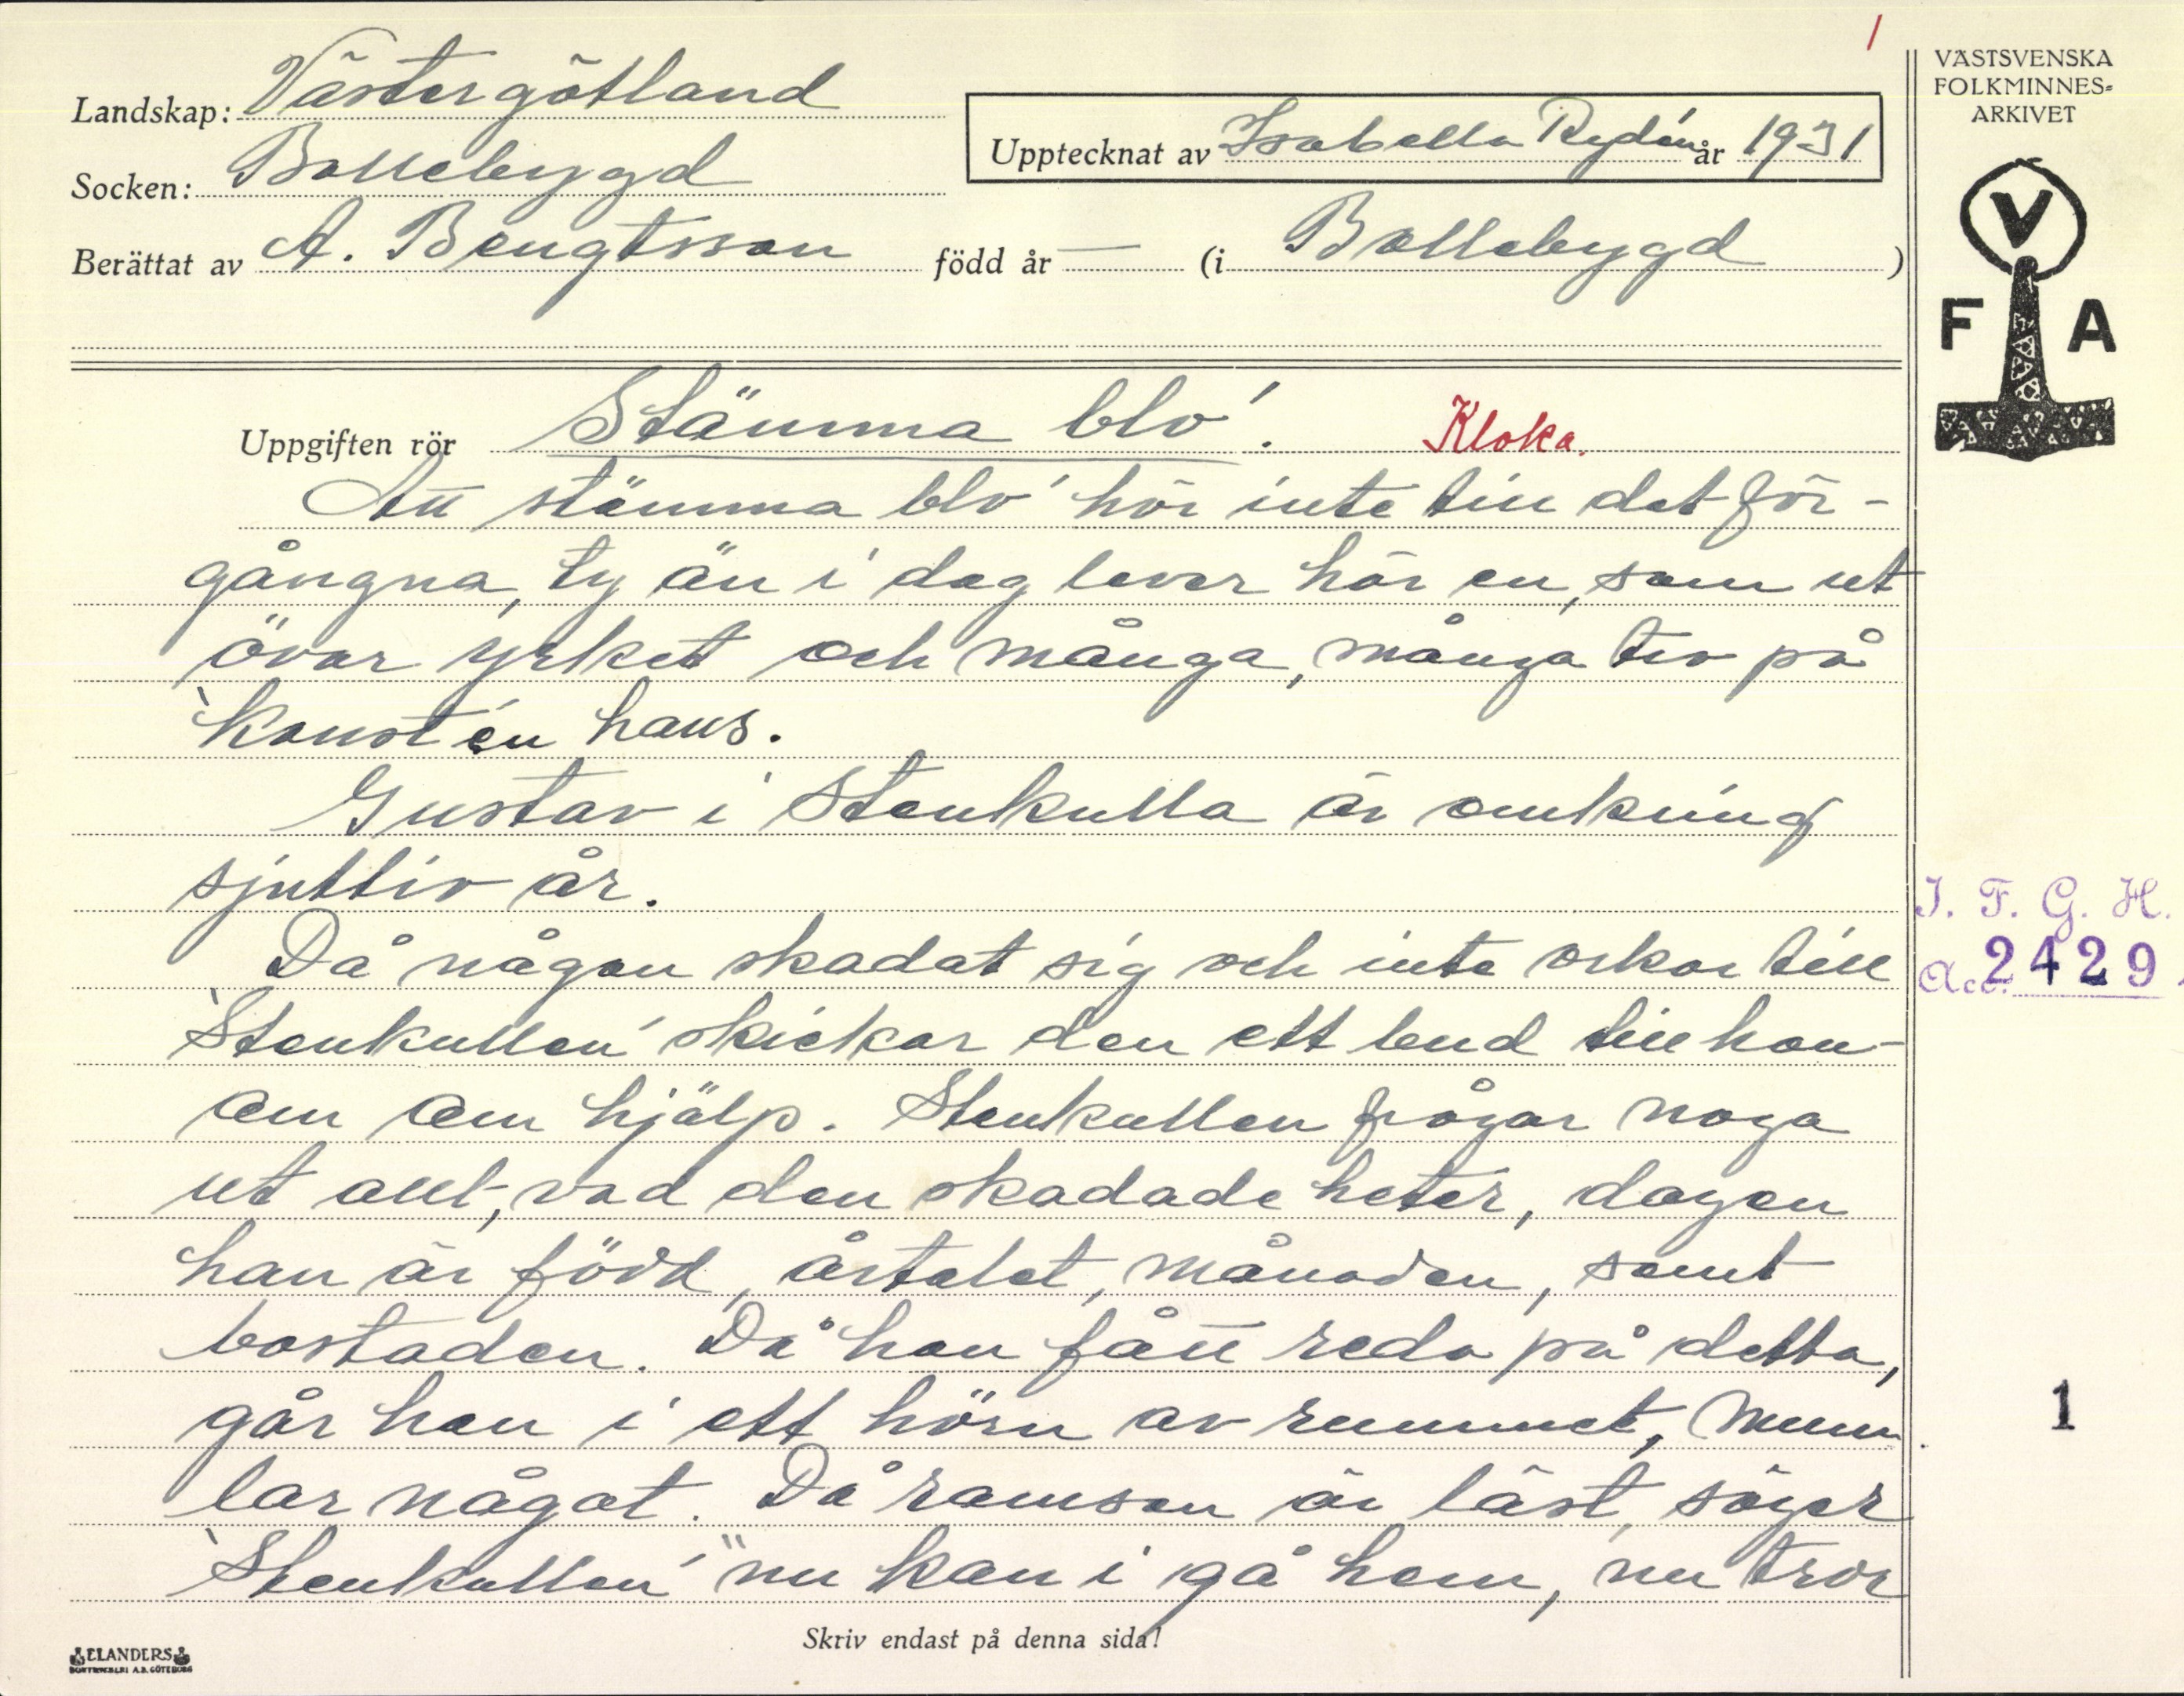 1
VÄSTSVENSKA
FOLKMINNES=
ARKIVET
Landskap: Västergötland
Upptecknat av Isabella Rydén år 1931
Socken: Bollebygd
Berättat av A. Bengtsson född år — (i Bollebygd)
V
F A
Uppgiften rör Stämma blo'. Kloka.
Att stämma blo' hör inte till det för-
gångna, ty än i dag lever här en, som ut
övar yrket och många, många tro på
'konst'en hans.
Gustav i Stenkulla är omkring
sjuttio år.
I. F. G. H.
Då någon skadat sig och inte orkar till
Acc. 2429
'Stenkullen' skickar den ett bud till hon-
om om hjälp. Stenkullen frågar noga
ut allt, vad den skadade heter, dagen
han är född, årtalet, månaden, samt
bostaden. Då han fått reda på detta,
går han i ett hörn av rummet, mum
1
lar något. Då ramsan är läst, säger
'Stenkullen' "nu kan i gå hem, nu tror
Skriv endast på denna sida!
ELANDERS
BOKTRYCKERI A.B. GÖTEBORG